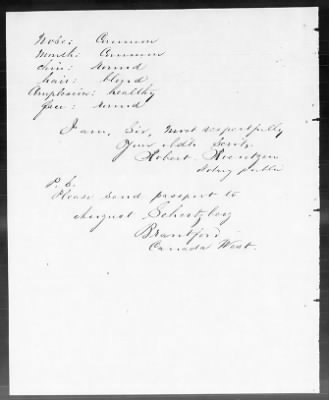 Nose: Common
Mouth: Common
chin: round
hair: blond
Complexion: healthy
face: round
I am, Sir, most respectfully
Your obdt. Servt.
Robert
Notary public
P. S.
Please send passport to
August
Brantford
Canada West.